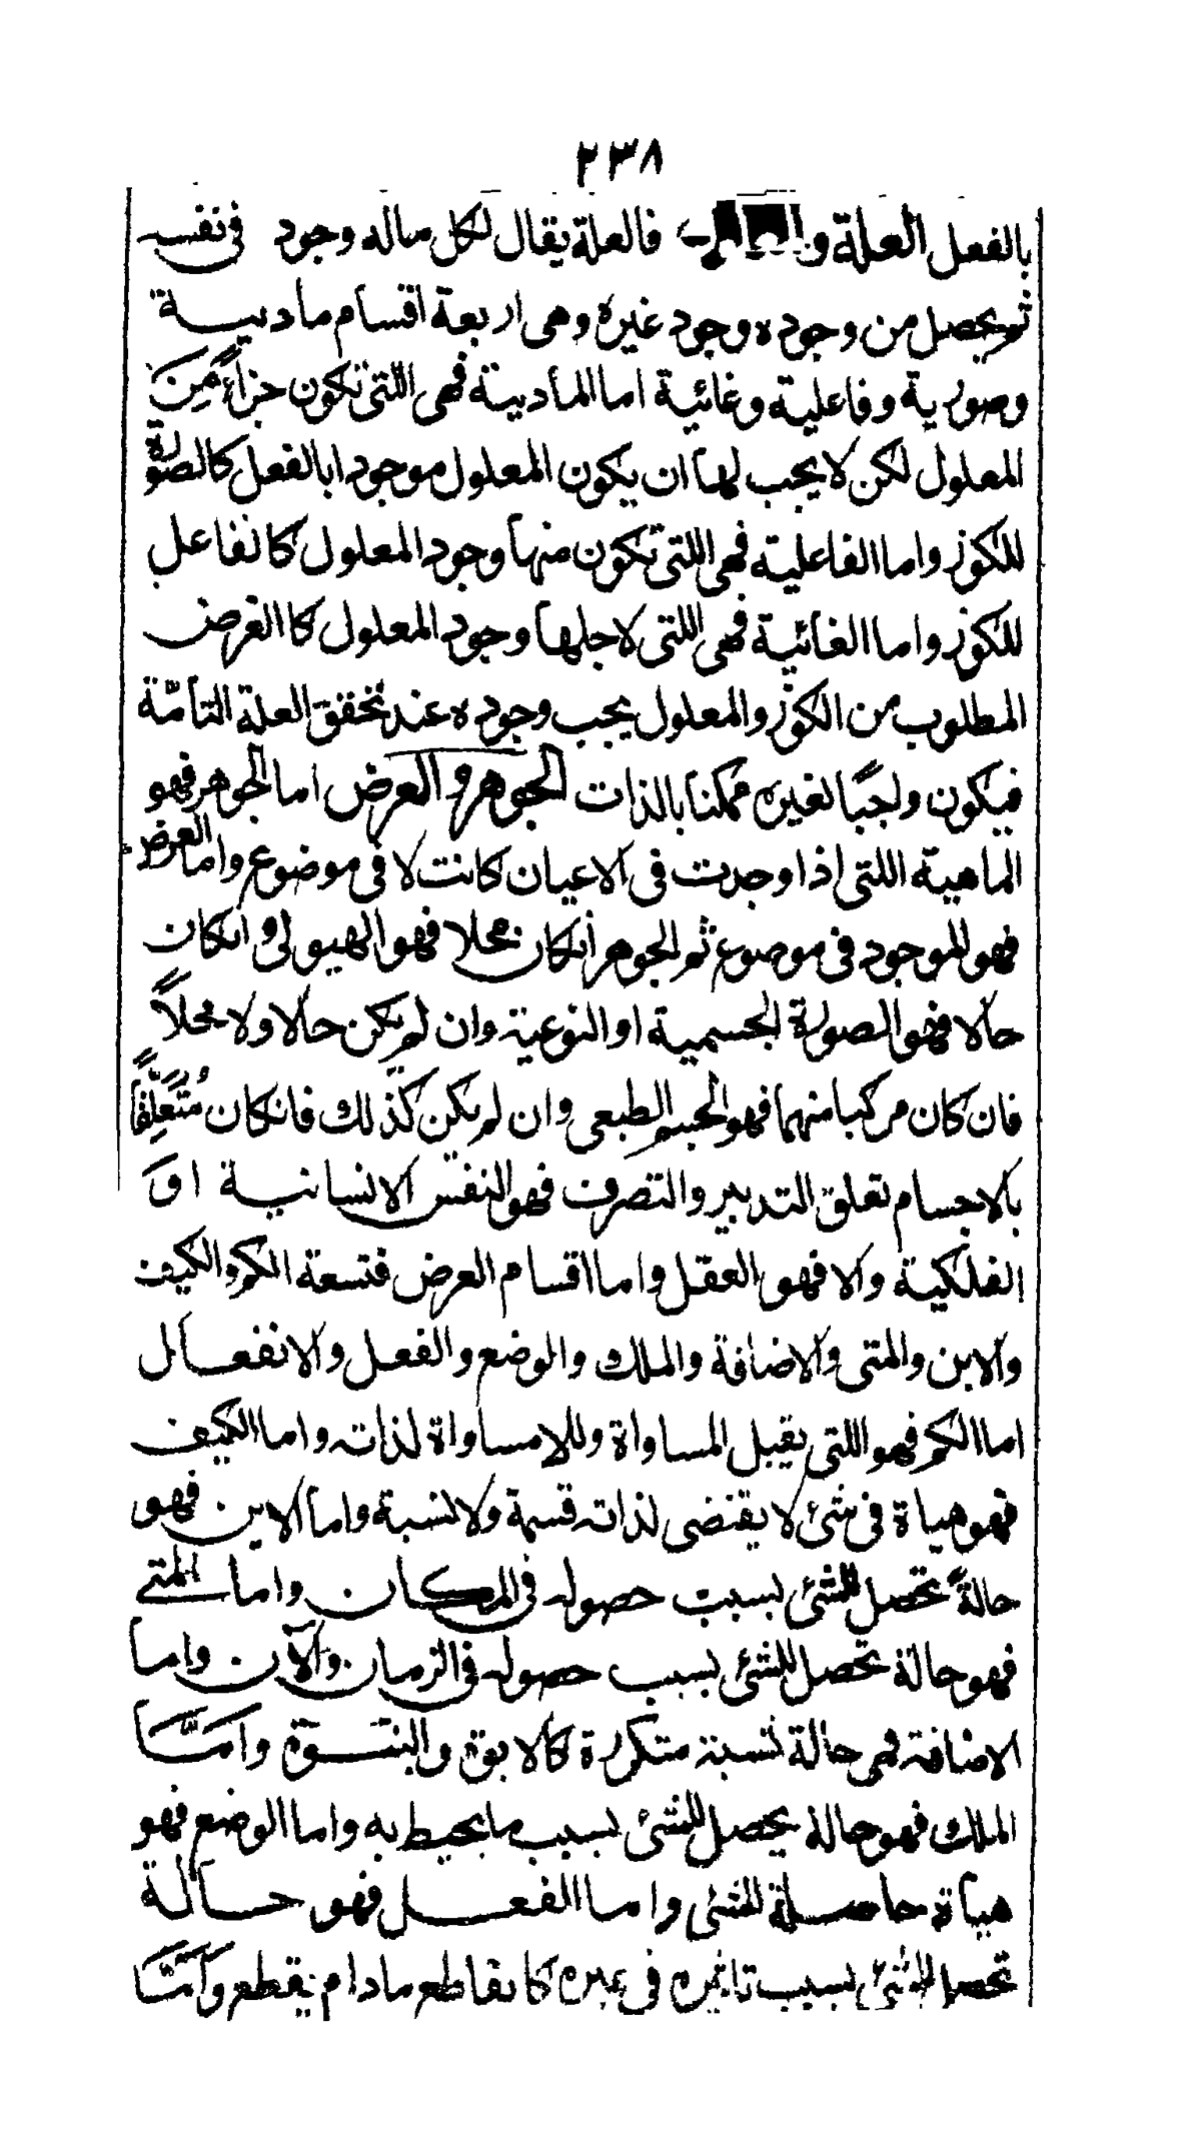 ٢٣٨
بالفعل العلة و فالعلة يقال لكل ماله وجود فى نفسه
ثم يحصل من وجوده وجود غيره وهى اربعة اقسام مادية
وصورية وفاعلية وغائية اما المادية فهى اللتى تكون جزاءً مِنَ
المعلول لكن لا يجب لها ان يكون المعلول موجودا بالفعل كالصورة
للكوز واما الفاعلية فهى اللتى تكون منها وجود المعلول كالفاعل
للكوز واما الغائية فهى اللتى لاجلها وجود المعلول كالغرض
المطلوب من الكوز والمعلول يجب وجوده عند تحقق العلة التامّة
فيكون واجبًا لغيره ممكنا بالذات الجوهر والعرض اما الجوهر فهو
الماهية اللتى اذا وجدت فى الاعيان كانت لا فى موضوع واما العرض
فهو الموجود فى موضوع ثم الجوهر انكان محلا فهو الهيولى وانكان
حالا فهو الصورة الجسمية او النوعية وان لم يكن حالا ولا محلاً
فان كان مركبا منهما فهو الجسم الطبعى وان لم يكن كذلك فانكان مُتَعَلِّقًا
بالاجسام تعلق التدبير والتصرف فهو النفس الانسانية اوَ
الفلكية والا فهو العقل واما اقسام العرض فتسعة الكم والكيف
والاين والمتى والاضافة والملك والوضع والفعل والانفعال
اما الكم فهو اللتى يقبل المساواة وللامساواة لذاته واما الكيف
فهو هياة فى شئ لا يقتضى لذاته قسمة ولا نسبة واما الاين فهو
حالةً تحصل للشئ بسبب حصوله فى المكان واما المتى
فهو حالة تحصل للشئ بسبب حصوله فى الزمان والآن واما
الاضافة فهى حالة نسبة متكررة كالابوة والبنوة وامَّا
الملك فهو حالة يحصل للشئ بسبب ما يحيط به واما الوضع فهو
هياة حاصلة للشئ واما الفعل فهو حالة
تحصل للشئ بسبب تاثيره فى غيره كالقاطع مادام يقطع وامَّا